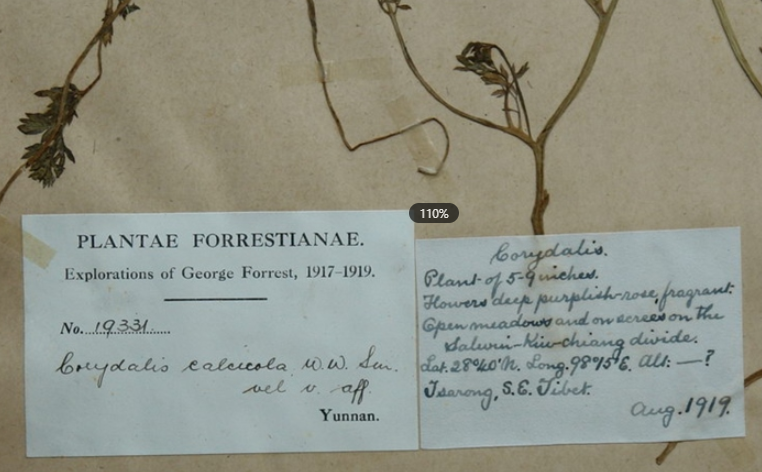 110%
PLANTAE FORRESTIANAE.
Explorations of George Forrest, 1917-1919.
No. 19331
Corydalis calcicola W.W. Sm.
vel v. aff.
Yunnan.
Corydalis.
Plant of 5-9 inches.
Flowers deep purplish-rose, fragrant.
Open meadows and on screes on the
Salwin-Kiu-chiang divide.
Lat. 28°40'N. Long. 98°15'E. Alt: —?
Tsarong, S.E. Tibet.
Aug. 1919.